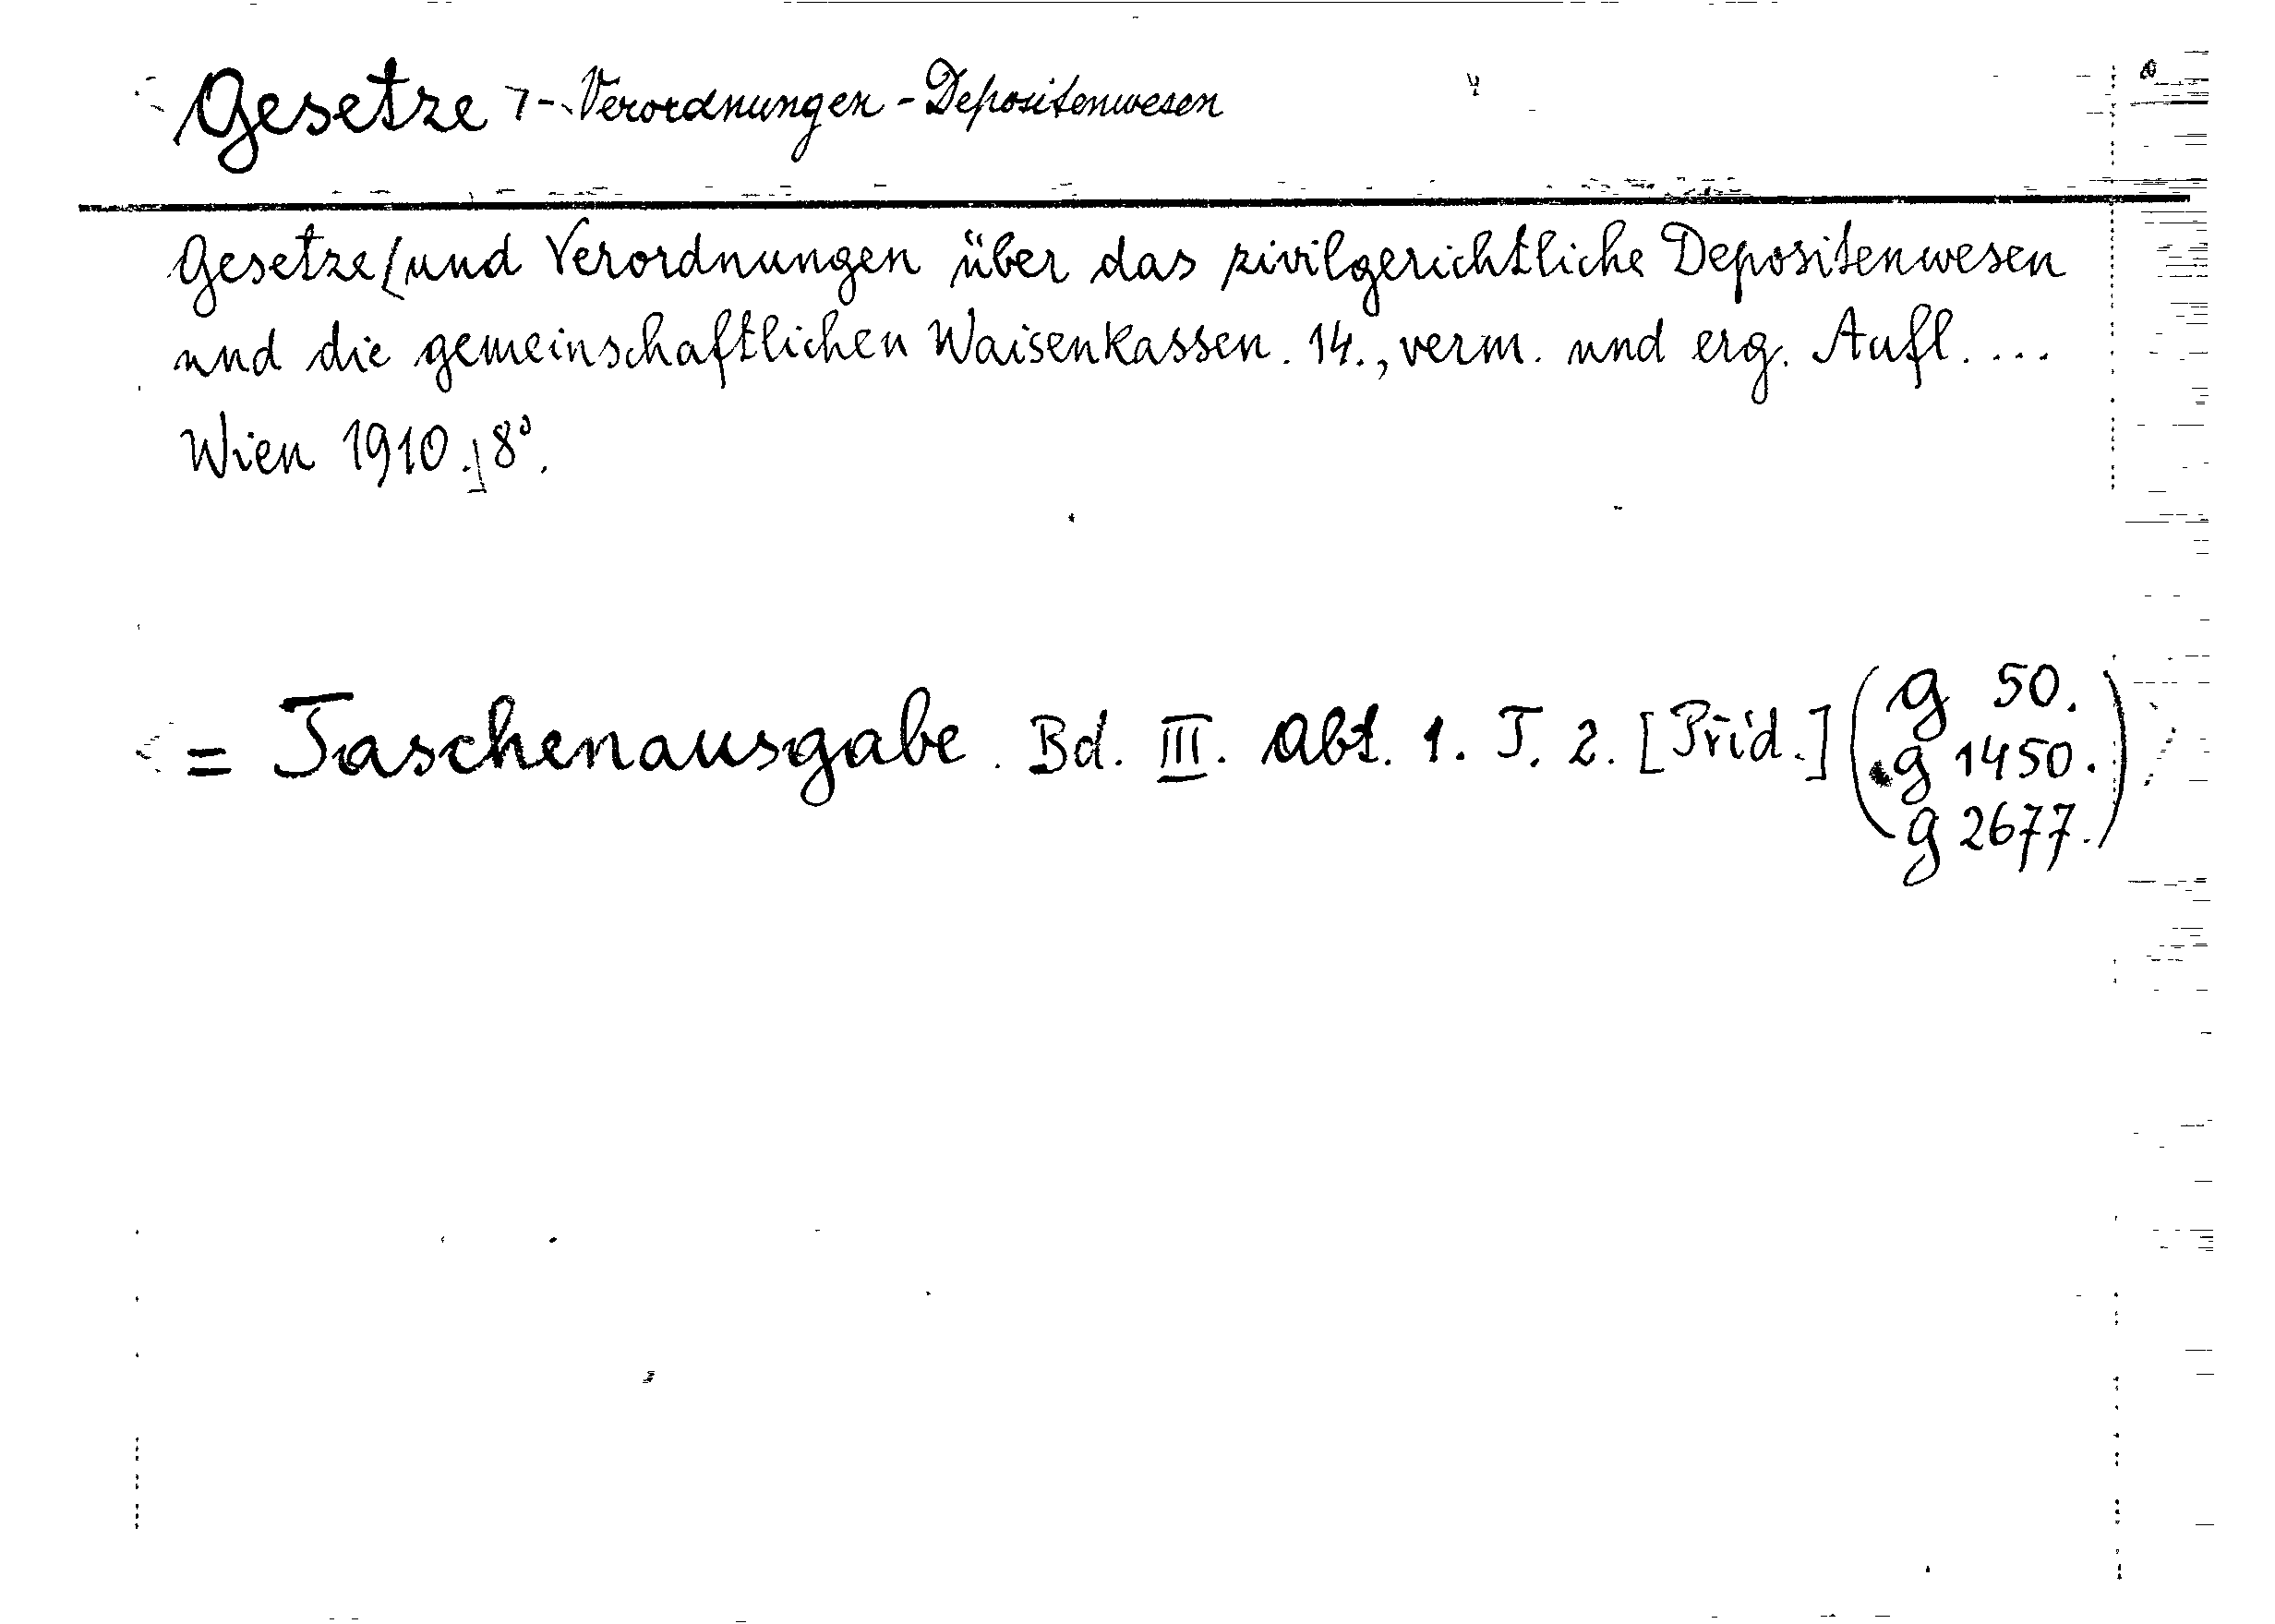 Gesetze - Verordnungen - Depositenwesen
Gesetze [und Verordnungen über das zivilgerichtliche Depositenwesen
und die gemeinschaftlichen Waisenkassen. 14., verm. und erg. Aufl. ...
Wien 1910.] 8°.
= Taschenausgabe. Bd. III. Abt. 1. T. 2. [Präd.] (g 50.
g 1450.
g 2677.)